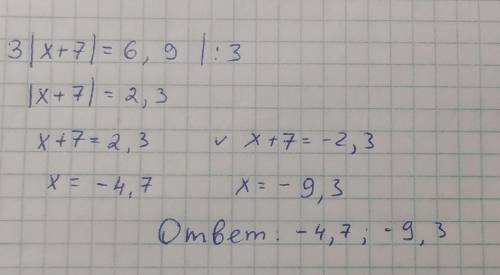 3|x+7|=6,9 |:3
|x+7|=2,3
x+7=2,3 v x+7=-2,3
x=-4,7 x=-9,3
Ответ: -4,7; -9,3